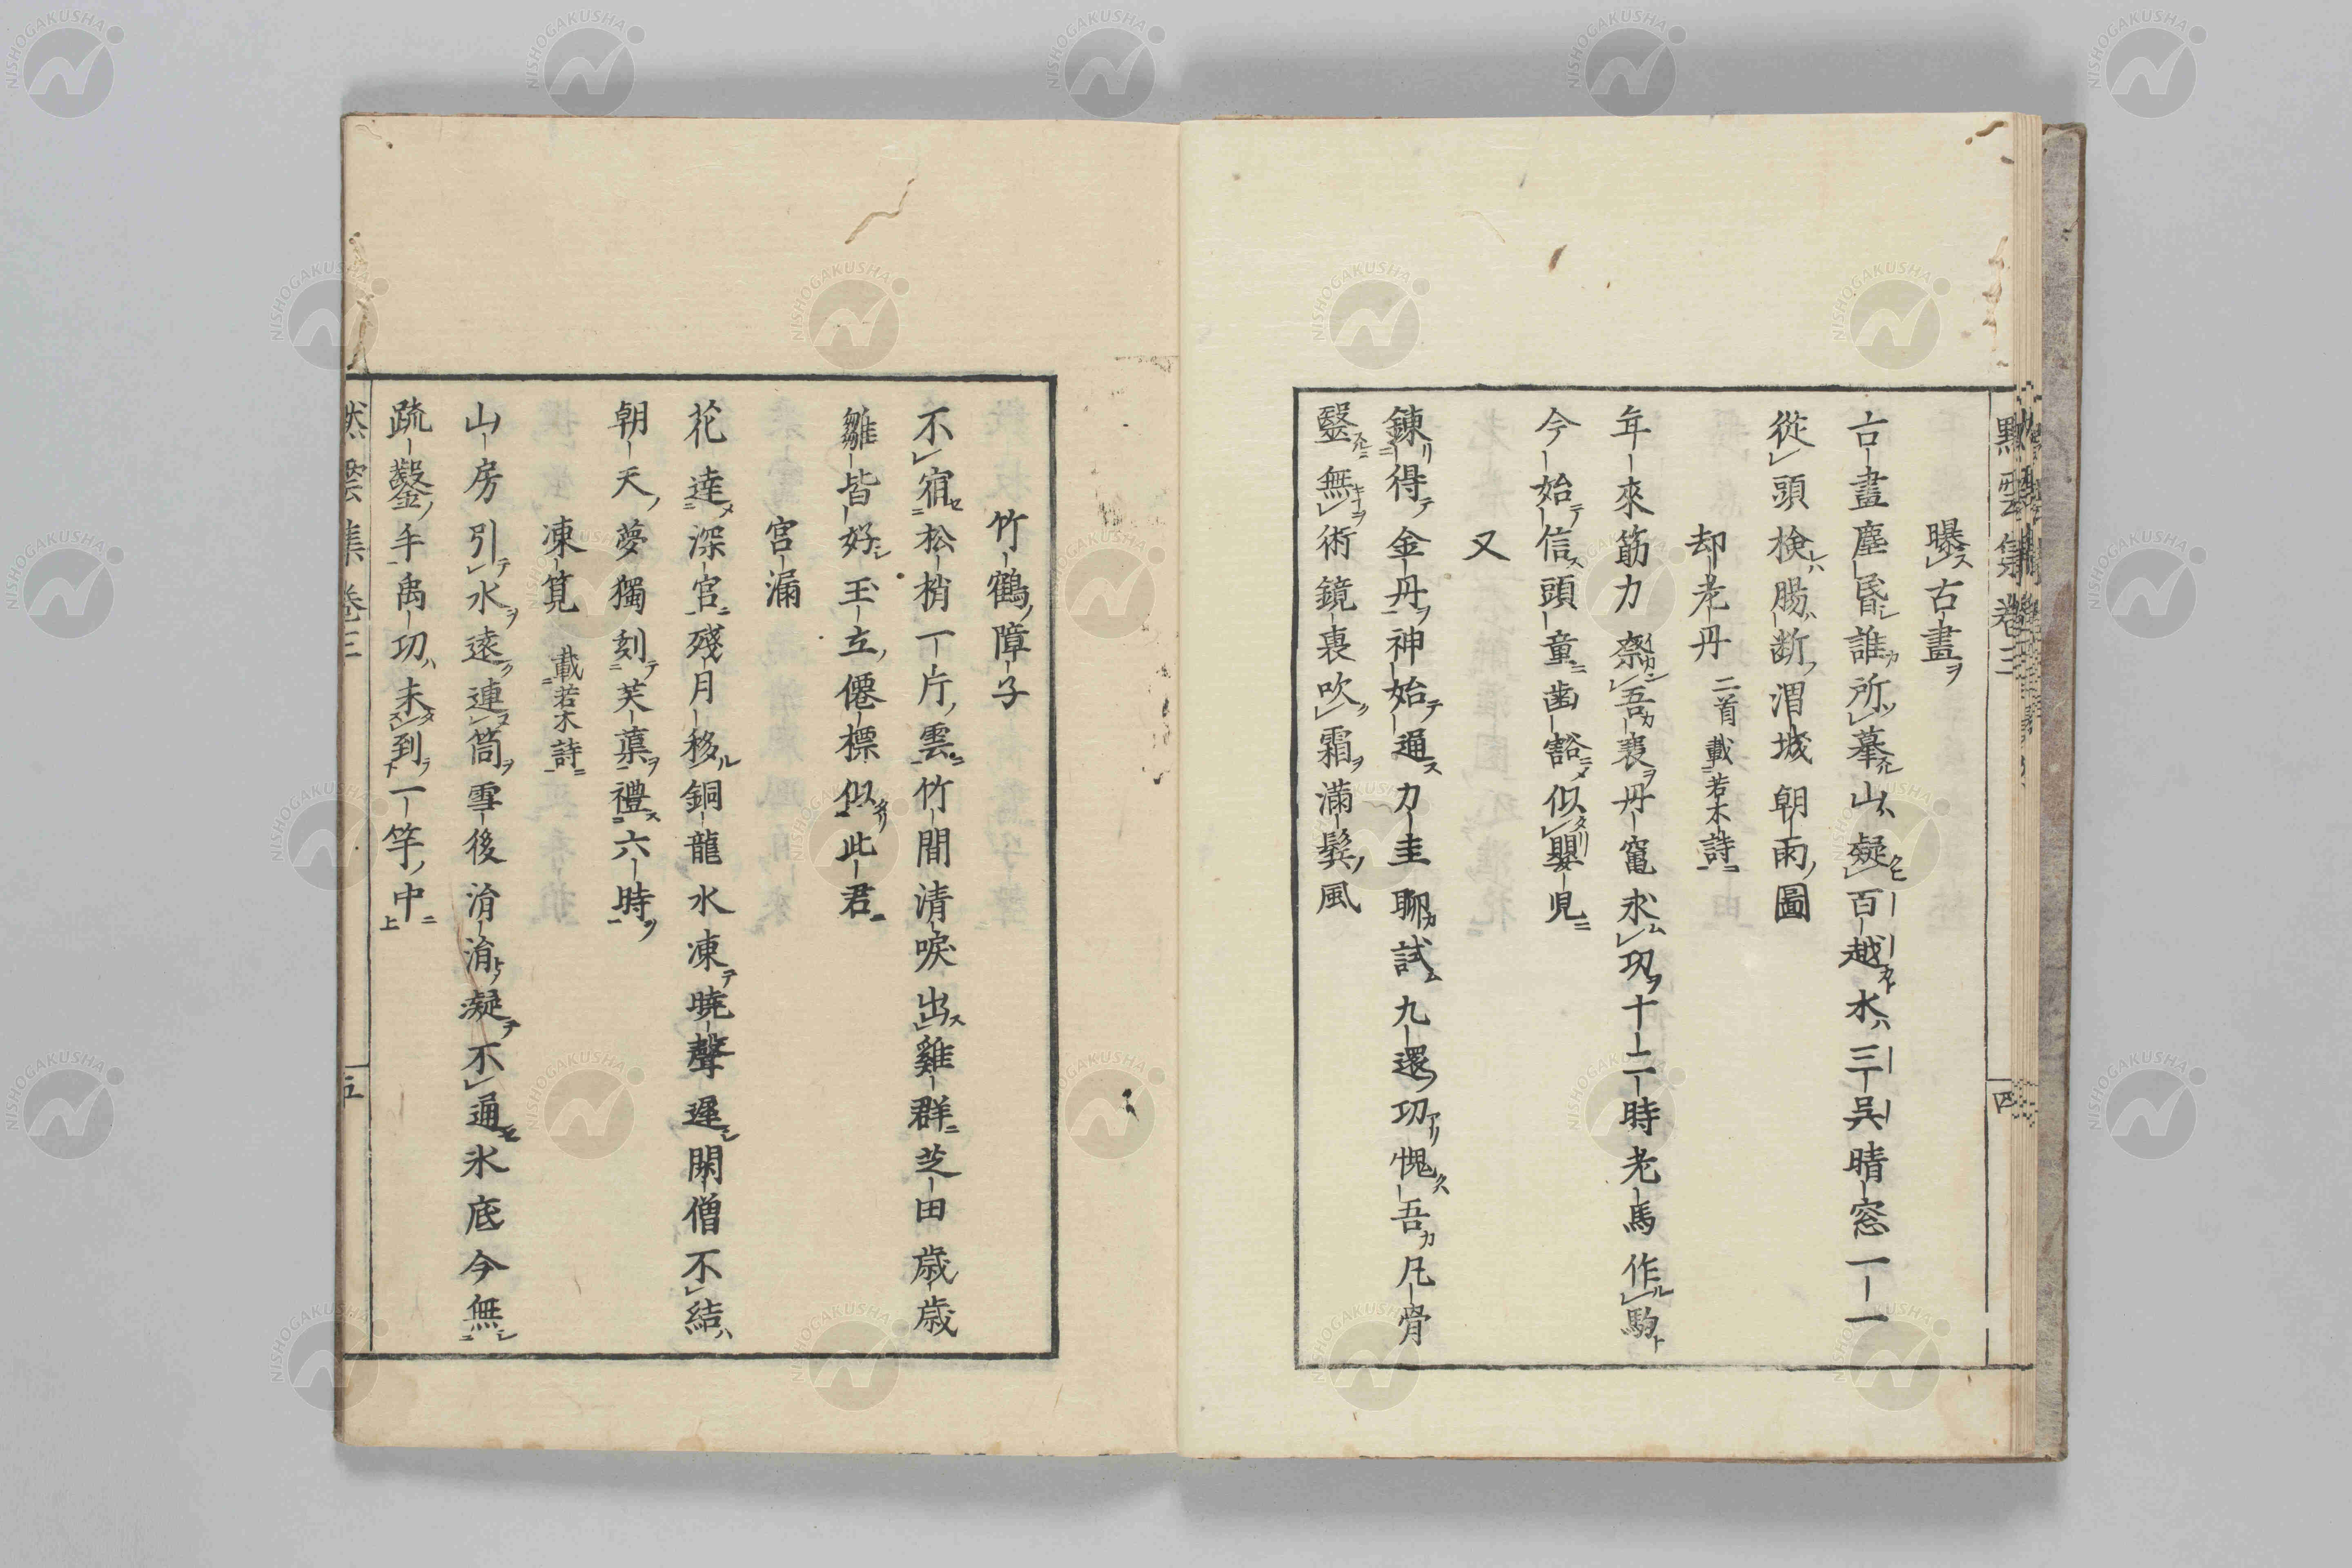 曝古畫
古畫塵昏誰所摹山疑百越水三吳晴窓一一
從頭検腸断渭城朝雨圖
却老丹 二首載若木詩
年來筋力嘆吾衰丹竃求功十二時老馬作駒
今始信頭童歯豁似嬰児
又
錬得金丹神始通刀圭聊試九還功愧吾凡骨
醫無術鏡裏吹霜満鬂風
四
竹鶴障子
不宿松梢一片雲竹間清唳出雞群芝田歳歳
雛皆好玉立僊標似此君
宮漏
花逹深宮殘月移銅龍水凍暁聲遲閑僧不結
朝天夢獨刻芙蕖禮六時
凍筧 載若木詩
山房引水遠連筒雪後涓涓凝不通氷底今無
疏鑿手禹功未到一竿中
雲集卷三
五
NISHOGAKUSHA